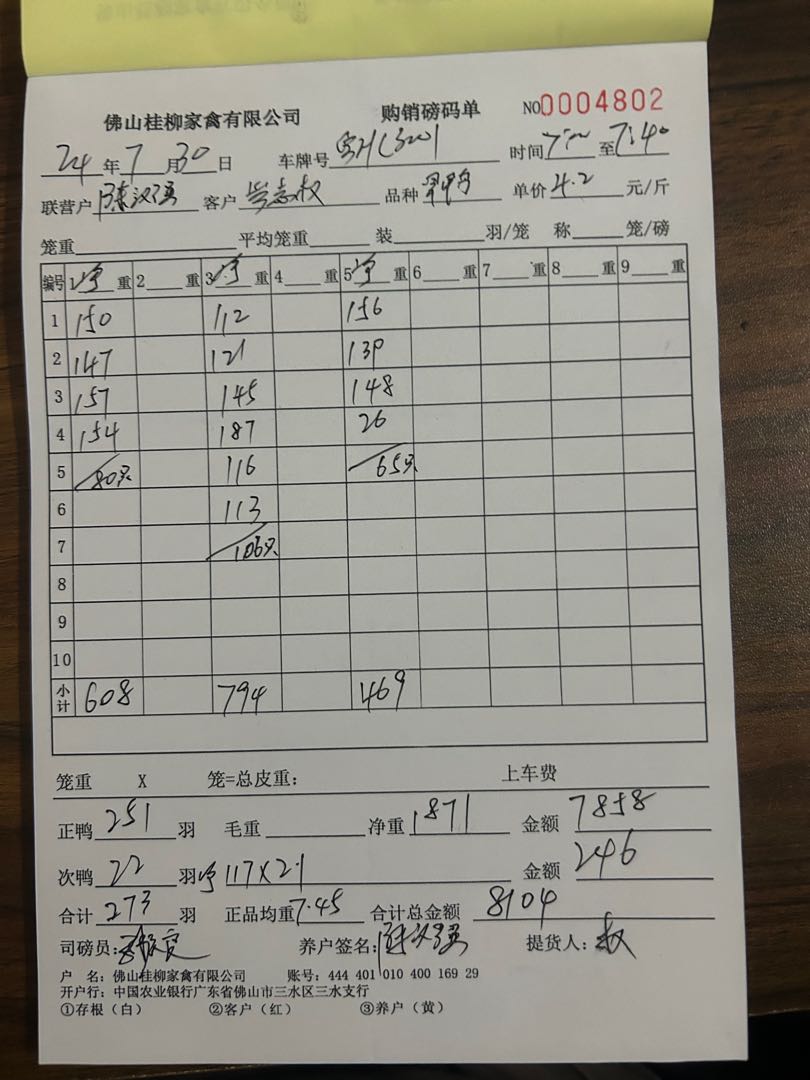 佛山桂柳家禽有限公司 购销磅码单 NO0004802
24年7月30日 车牌号 时间7: 至7:40
联营户陈汉强 客户 志权 品种 单价4.2元/斤
笼重 平均笼重 装 羽/笼 称 笼/磅
编号 1净重 2 重 3净重 4 重 5净重 6 重 7 重 8 重 9 重
1 150 112 156
2 147 121 139
3 157 145 148
4 154 187 26
5 80只 116 65只
6 113
7 106只
8
9
10
小计 608 794 469
笼重 X 笼=总皮重: 上车费
正鸭251羽 毛重 净重1871 金额7858
次鸭22羽净117X2.1 金额246
合计273羽 正品均重7.45 合计总金额8104
司磅员: 养户签名:陈汉强 提货人:权
户 名: 佛山桂柳家禽有限公司 账号: 444 401 010 400 169 29
开户行: 中国农业银行广东省佛山市三水区三水支行
①存根(白) ②客户(红) ③养户(黄)